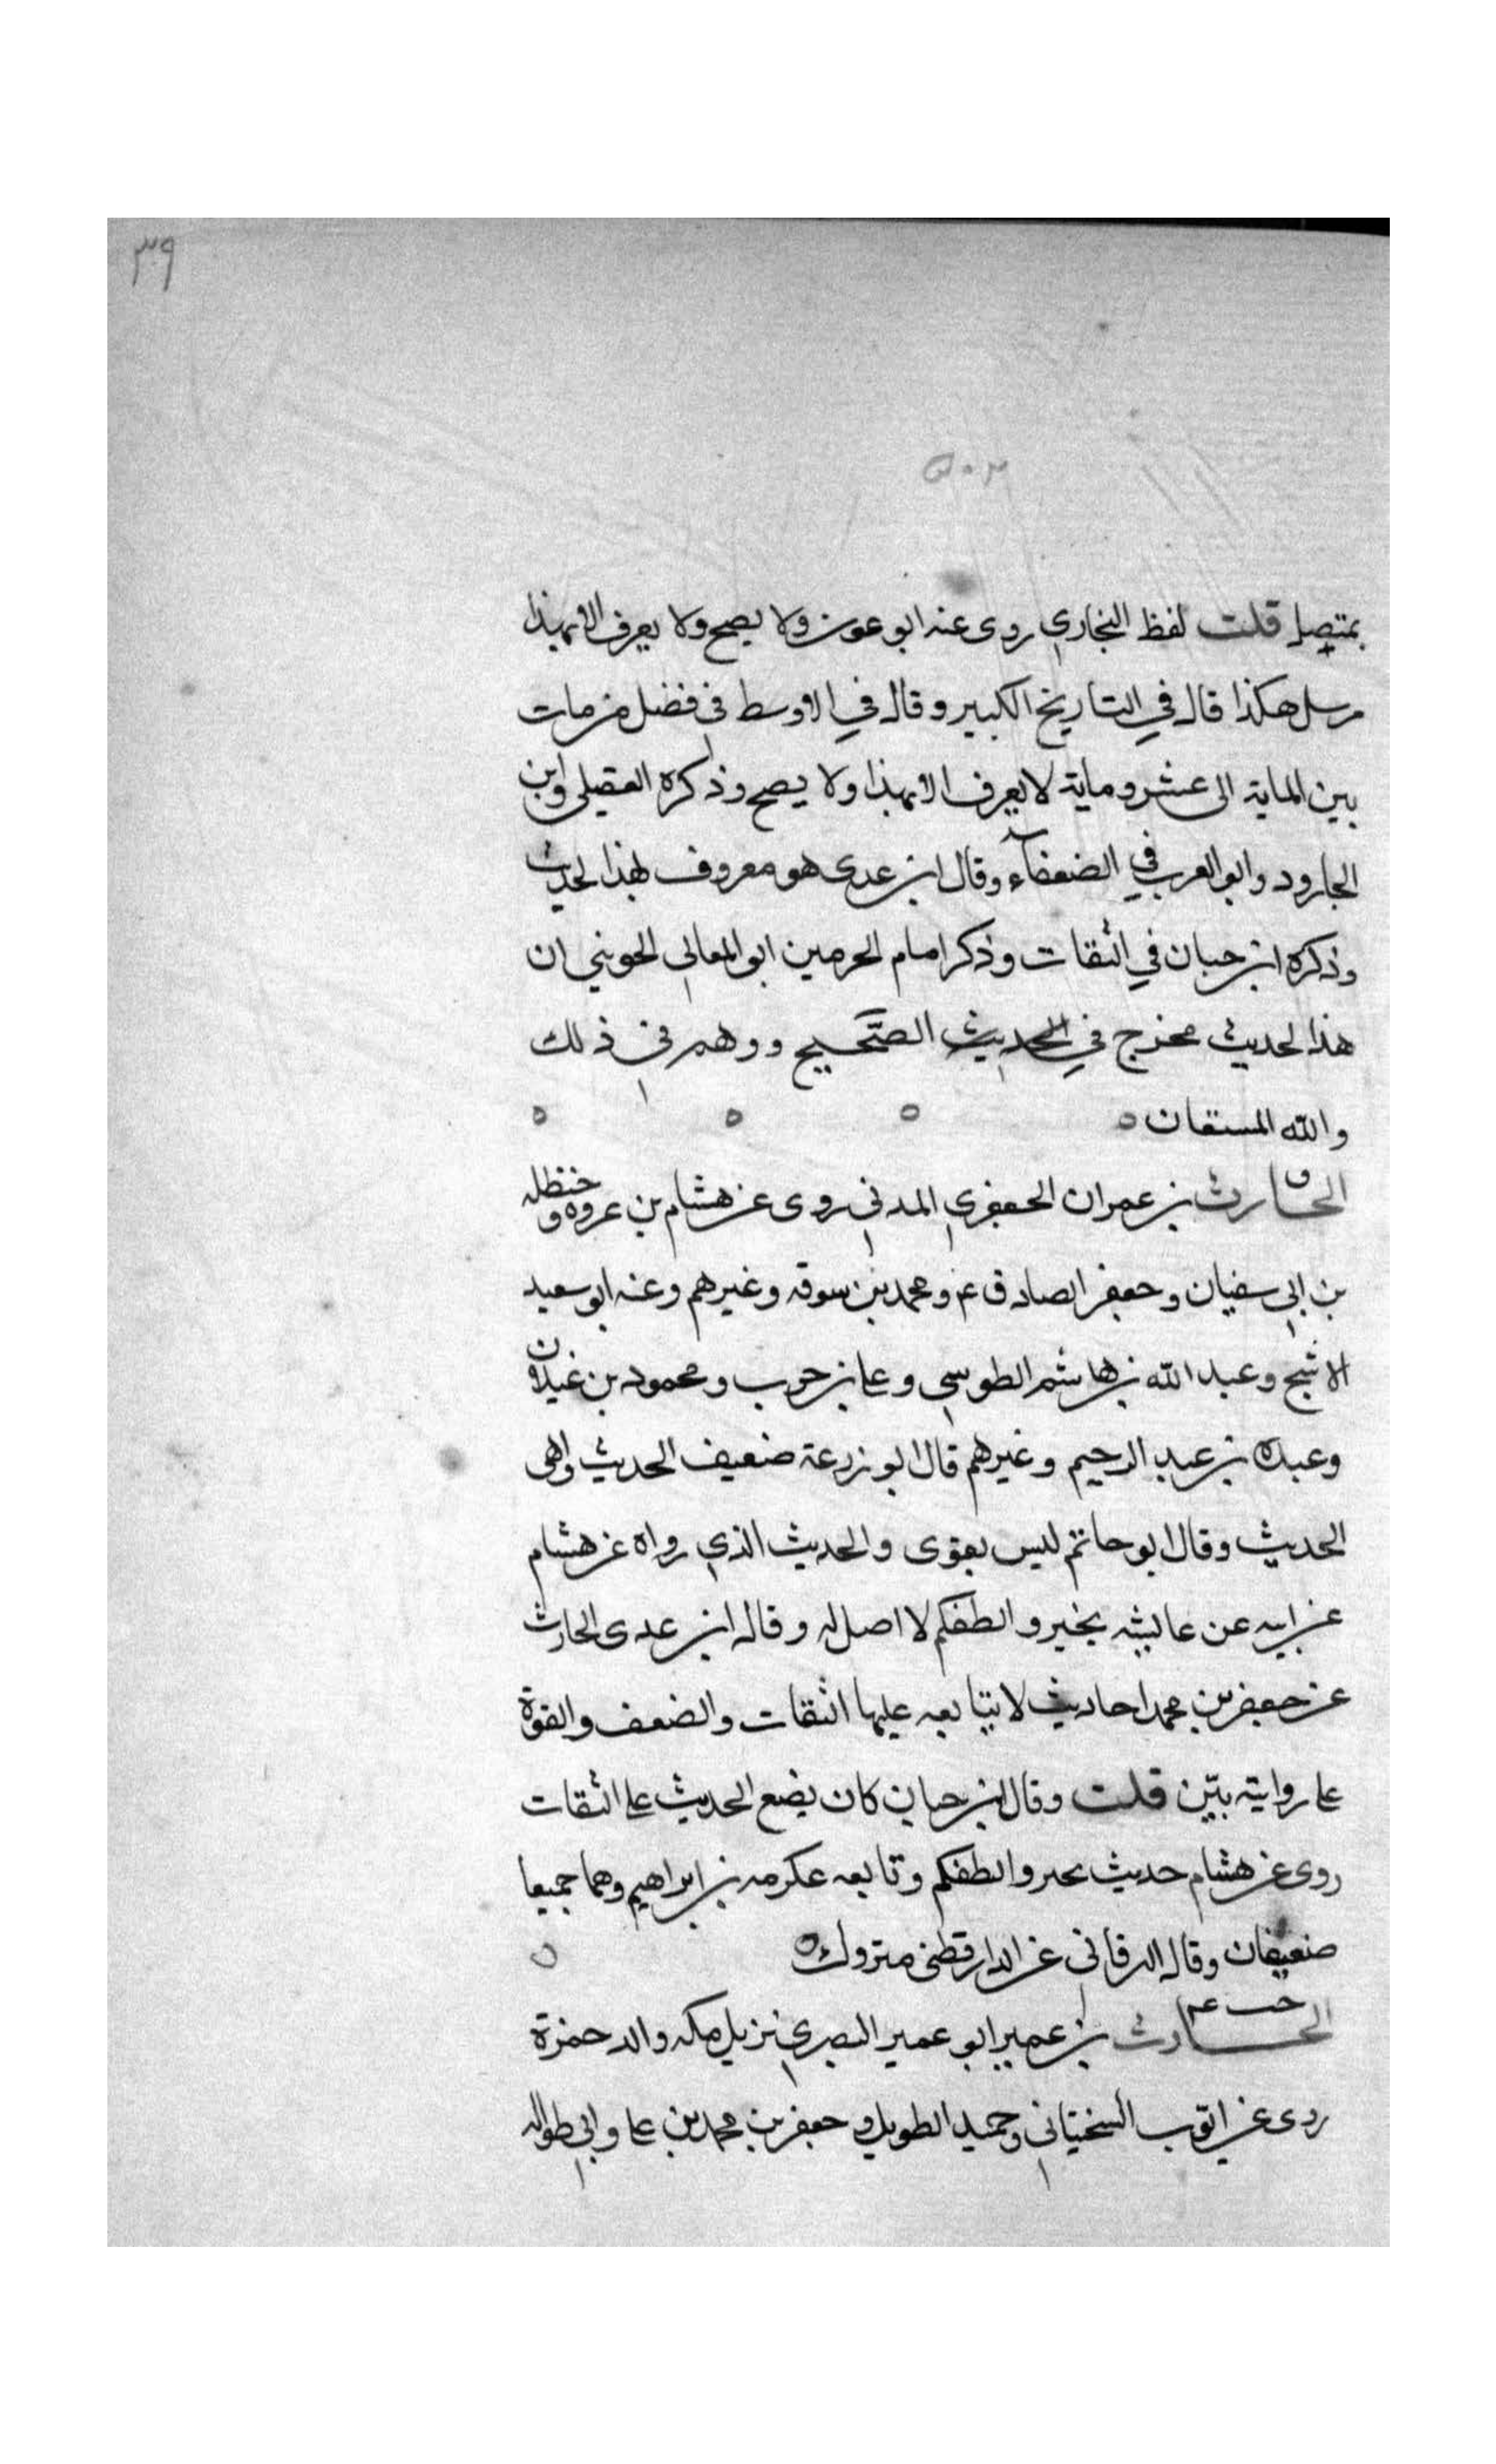 ٣٩
بمتصل قلت لفظ البخاري روى عنه ابو عون ولا يصح ولا يعرف الا بهذا
مرسل هكذا قال في التاريخ الكبير وقال في الاوسط في فضل من مات
بين الماية الى عشر وماية لا يعرف الا بهذا ولا يصح وذكره العقيلي وابن
الجارود وابو العرب في الضعفآء وقال ابن عدى هو معروف بهذا الحديث
وذكره ابن حبان في الثقات وذكر امام الحرمين ابو المعالي الجويني ان
هذا الحديث مخرج في الحديث الصحيح ووهم في ذلك
والله المستعان
ق
الحارث بن عمران الجعفري المدني روى عن هشام بن عروه وحنظله
بن ابي سفيان وجعفر الصادق ع ومحمد بن سوقه وغيرهم وعنه ابو سعيد
الاشج وعبد الله بن هاشم الطوسي وعلي بن حرب ومحمود بن غيلان
وعبدة بن عبد الرحيم وغيرهم قال ابو زرعة ضعيف الحديث واهى
الحديث وقال ابو حاتم ليس بقوى والحديث الذي رواه عن هشام
عن ابيه عن عايشه تخيروا لنطفكم لا اصل له وقال ابن عدى للحارث
عن جعفر بن محمد احاديث لا يتابعه عليها الثقات والضعف والقوة
على روايته بيّن قلت وقال ابن حبان كان يضع الحديث على الثقات
روى عن هشام حديث تخيروا لنطفكم وتابعه عكرمه بن ابراهيم وهما جميعا
ضعيفان وقال البرقاني عن الدارقطني متروك
خت عم
الحارث بن عمير ابو عمير البصري نزيل مكه والد حمزة
روى عن ايوب السختياني وحميد الطويل وجعفر بن محمد بن على وابي طواله